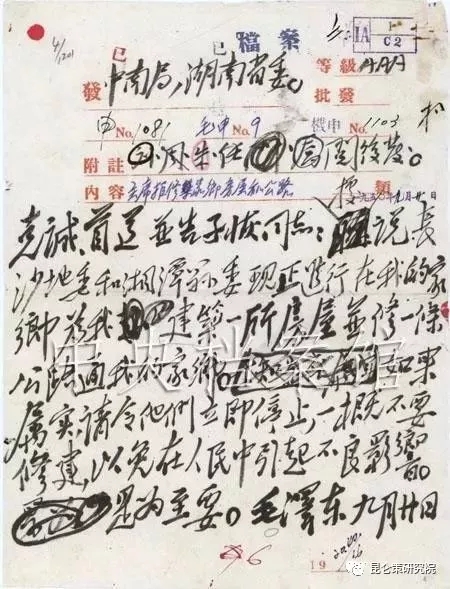 4/1201
已 已 檔案
IA
C2
等級 AAA
發 中南局，湖南省委。
批發
申 No. 1081 毛申 No. 9 機申 No. 1103
附註
周發。
內容 主席拒修 故鄉房屋和公路
類
一九五〇年九月廿日
克誠、首道並告子恢同志：據說長
沙地委和湘潭縣委現正進行在我的家
鄉為我建築一所房屋並修一條
公路通我的家鄉。如果
屬實，請令他們立即停止，一概不要
修建，以免在人民中引起不良影響。
是為至要。毛澤東九月廿日
中央档案馆
6
19
昆仑策研究院